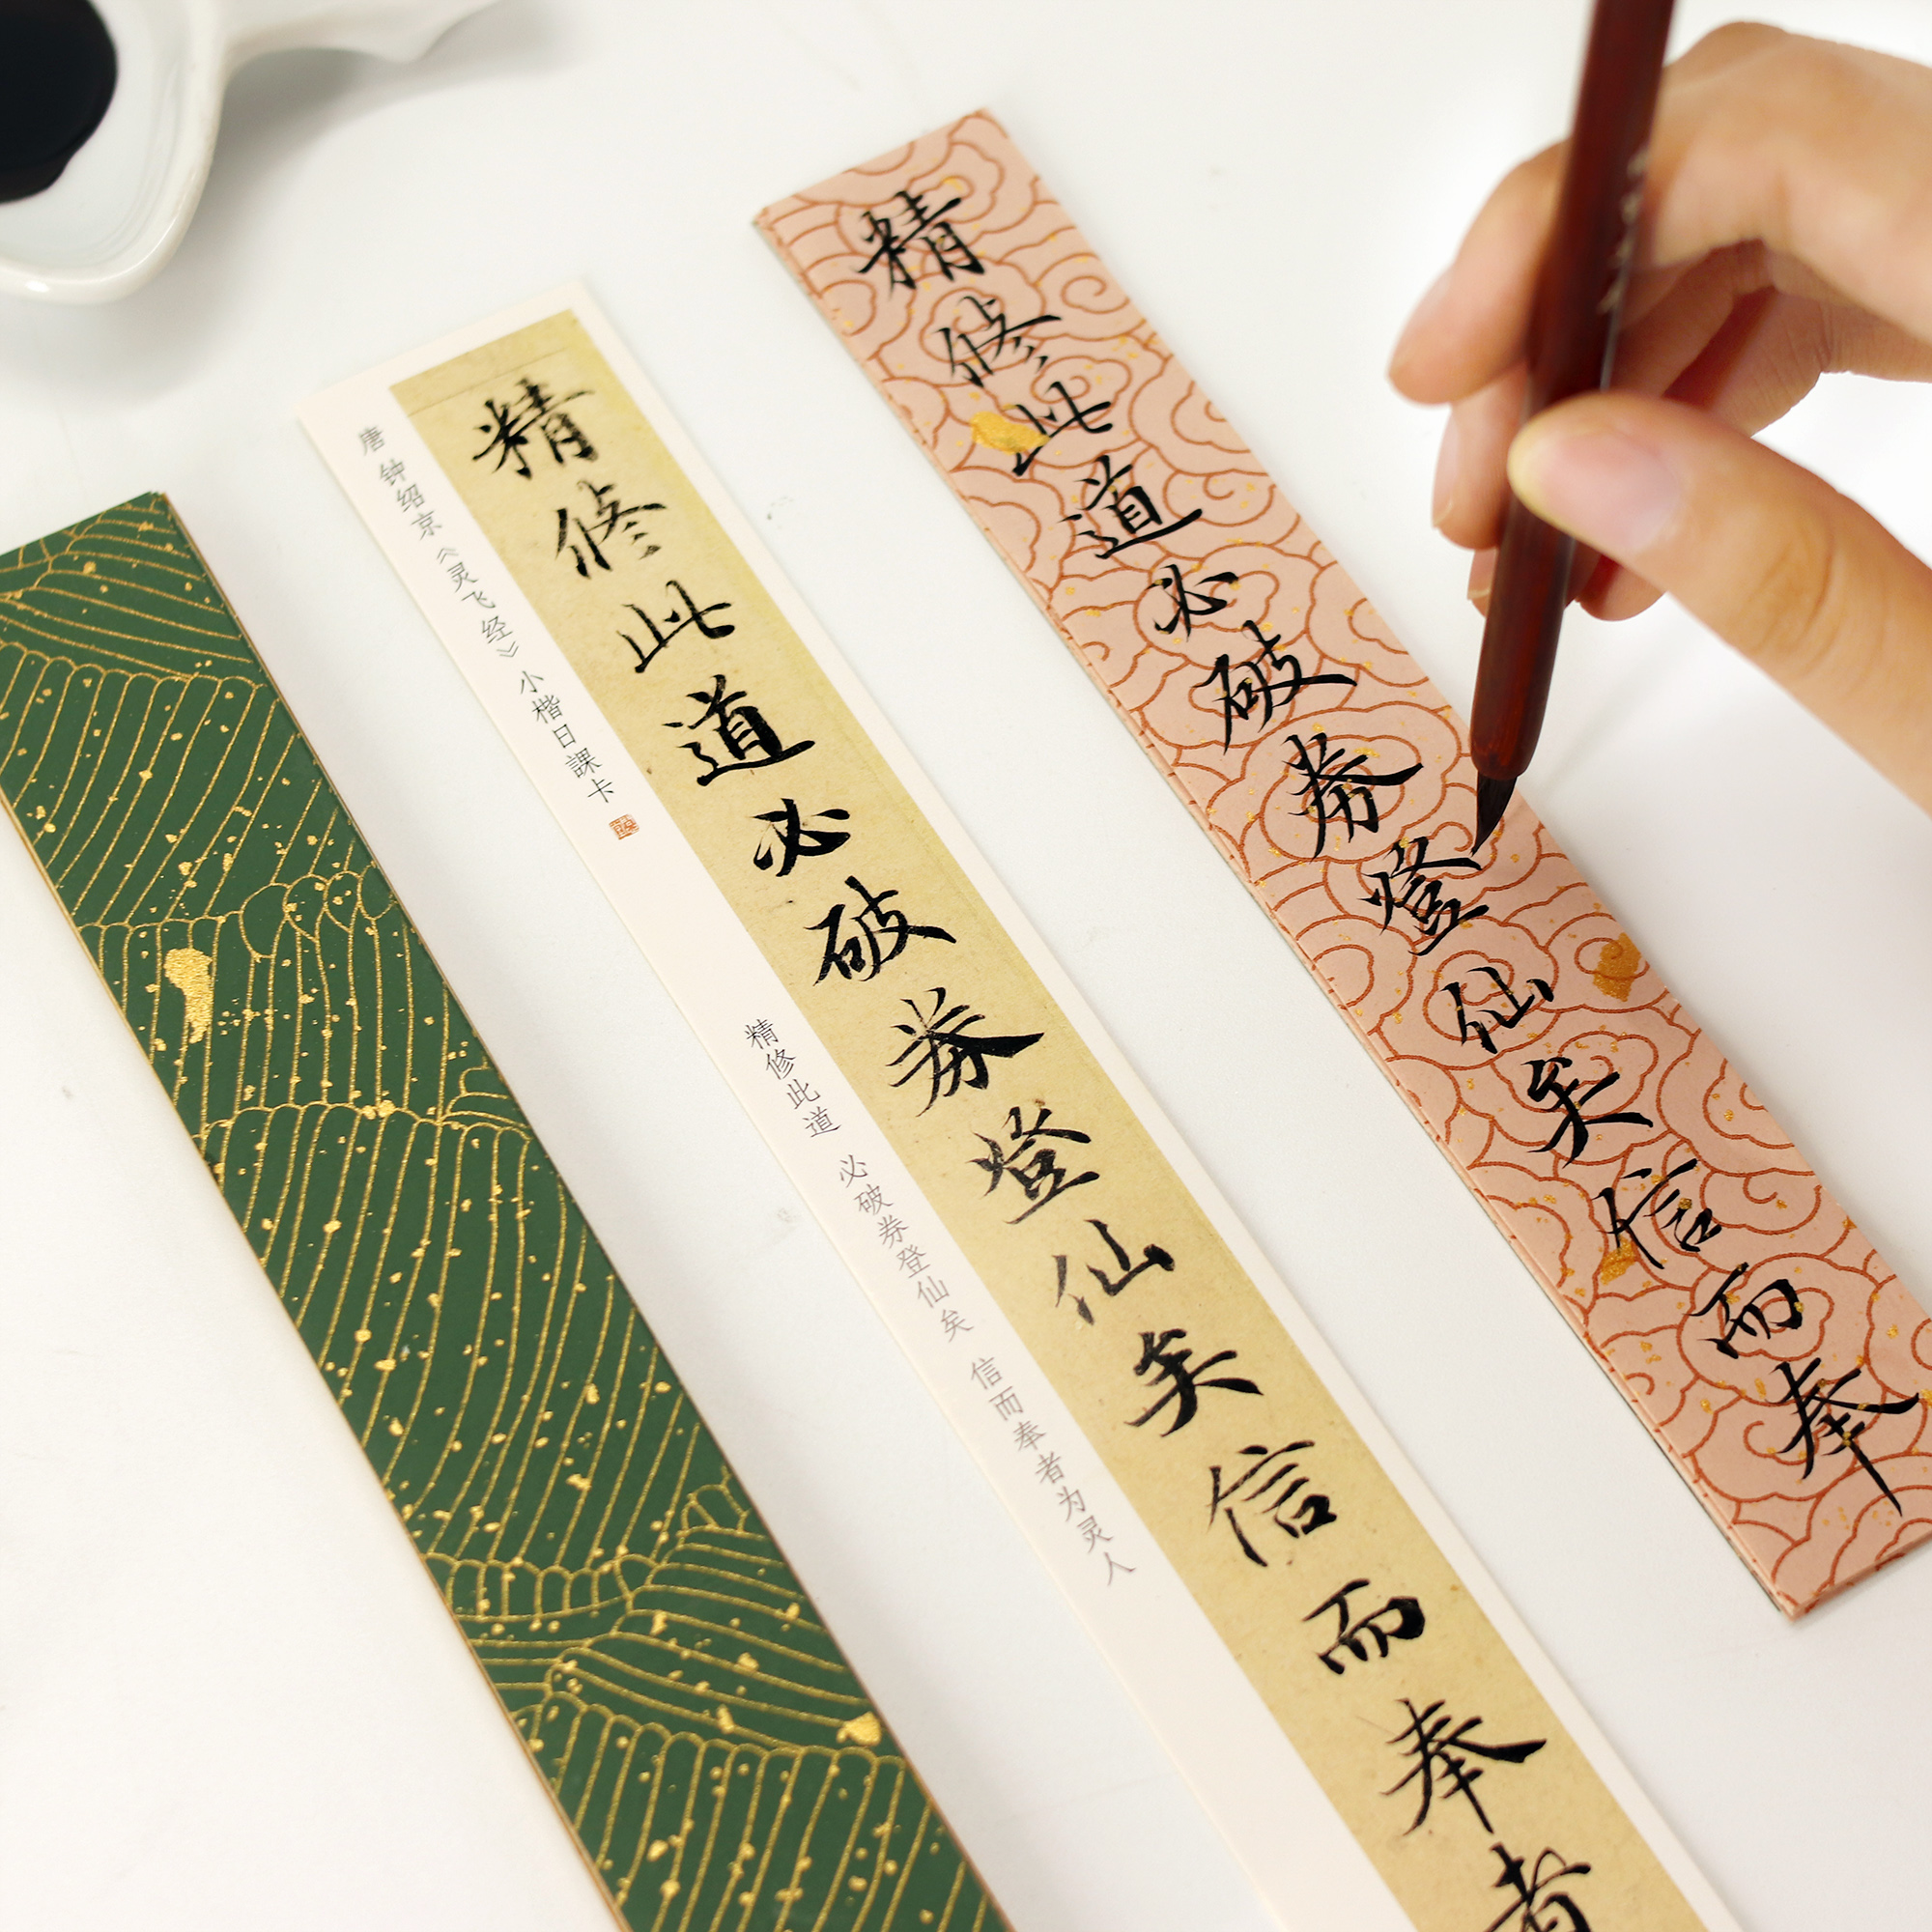 唐 钟绍京《灵飞经》 小楷日課卡
精修此道必破券登仙矣信而奉者
精修此道 必破券登仙矣 信而奉者为灵人
精修此道必破券登仙矣信而奉